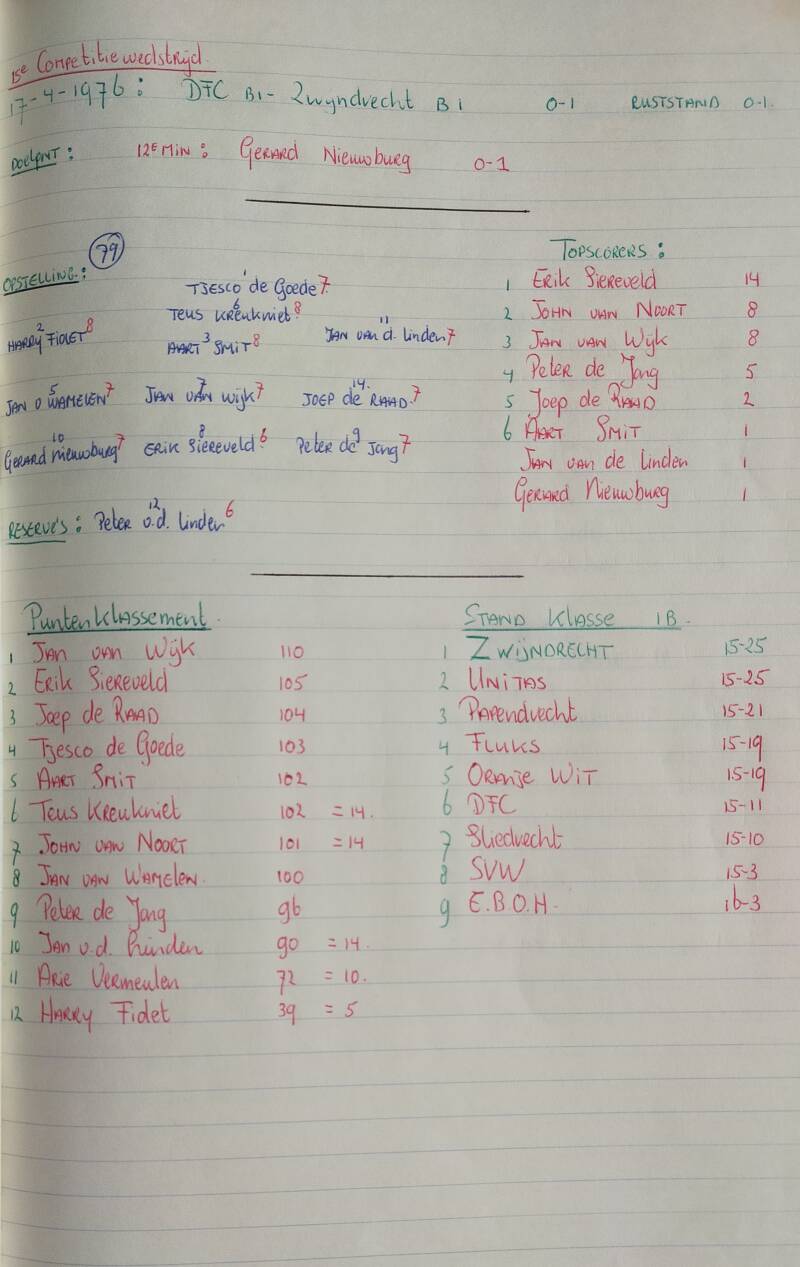 15e Competitiewedstrijd.
17-4-1976: DFC B1- Zwyndrecht B1 0-1 RUSTSTAND 0-1.
Doelpnt: 12e Min: Gerard Nieuwburg 0-1
79
Opstelling:
1
Tjesco de Goede 7
6
Teus Kreukniet 8
2 11
Harry Fidet 8 Jan van d. Linden 7
3
Aart Smit 8
5 7 14.
Jan v Wamelen 7 Jan van Wijk 7 Joep de Raad 7
10 8 9
Gerard Nieuwburg 7 Erik Siereveld 6 Peter de Jong 7
12
Reserve's: Peter v.d. Linden 6
Topscorers:
1 Erik Siereveld 14
2 John van Noort 8
3 Jan van Wijk 8
4 Peter de Jong 5
5 Joep de Raad 2
6 Aart Smit 1
Jan van de Linden 1
Gerard Nieuwburg 1
Puntenklassement.
1 Jan van Wijk 110
2 Erik Siereveld 105
3 Joep de Raad 104
4 Tjesco de Goede 103
5 Aart Smit 102
6 Teus Kreukniet 102 = 14.
7 John van Noort 101 = 14
8 Jan van Wamelen. 100
9 Peter de Jong 96
10 Jan v.d. Linden 90 = 14.
11 Arie Vermeulen 72 = 10.
12 Harry Fidet 39 = 5
Stand Klasse 1B.
1 Zwijndrecht 15-25
2 Unitas 15-25
3 Papendrecht 15-21
4 Fluks 15-19
5 Oranje Wit 15-19
6 DFC 15-11
7 Sliedrecht 15-10
8 SVW 15-3
9 E.B.O.H. 16-3